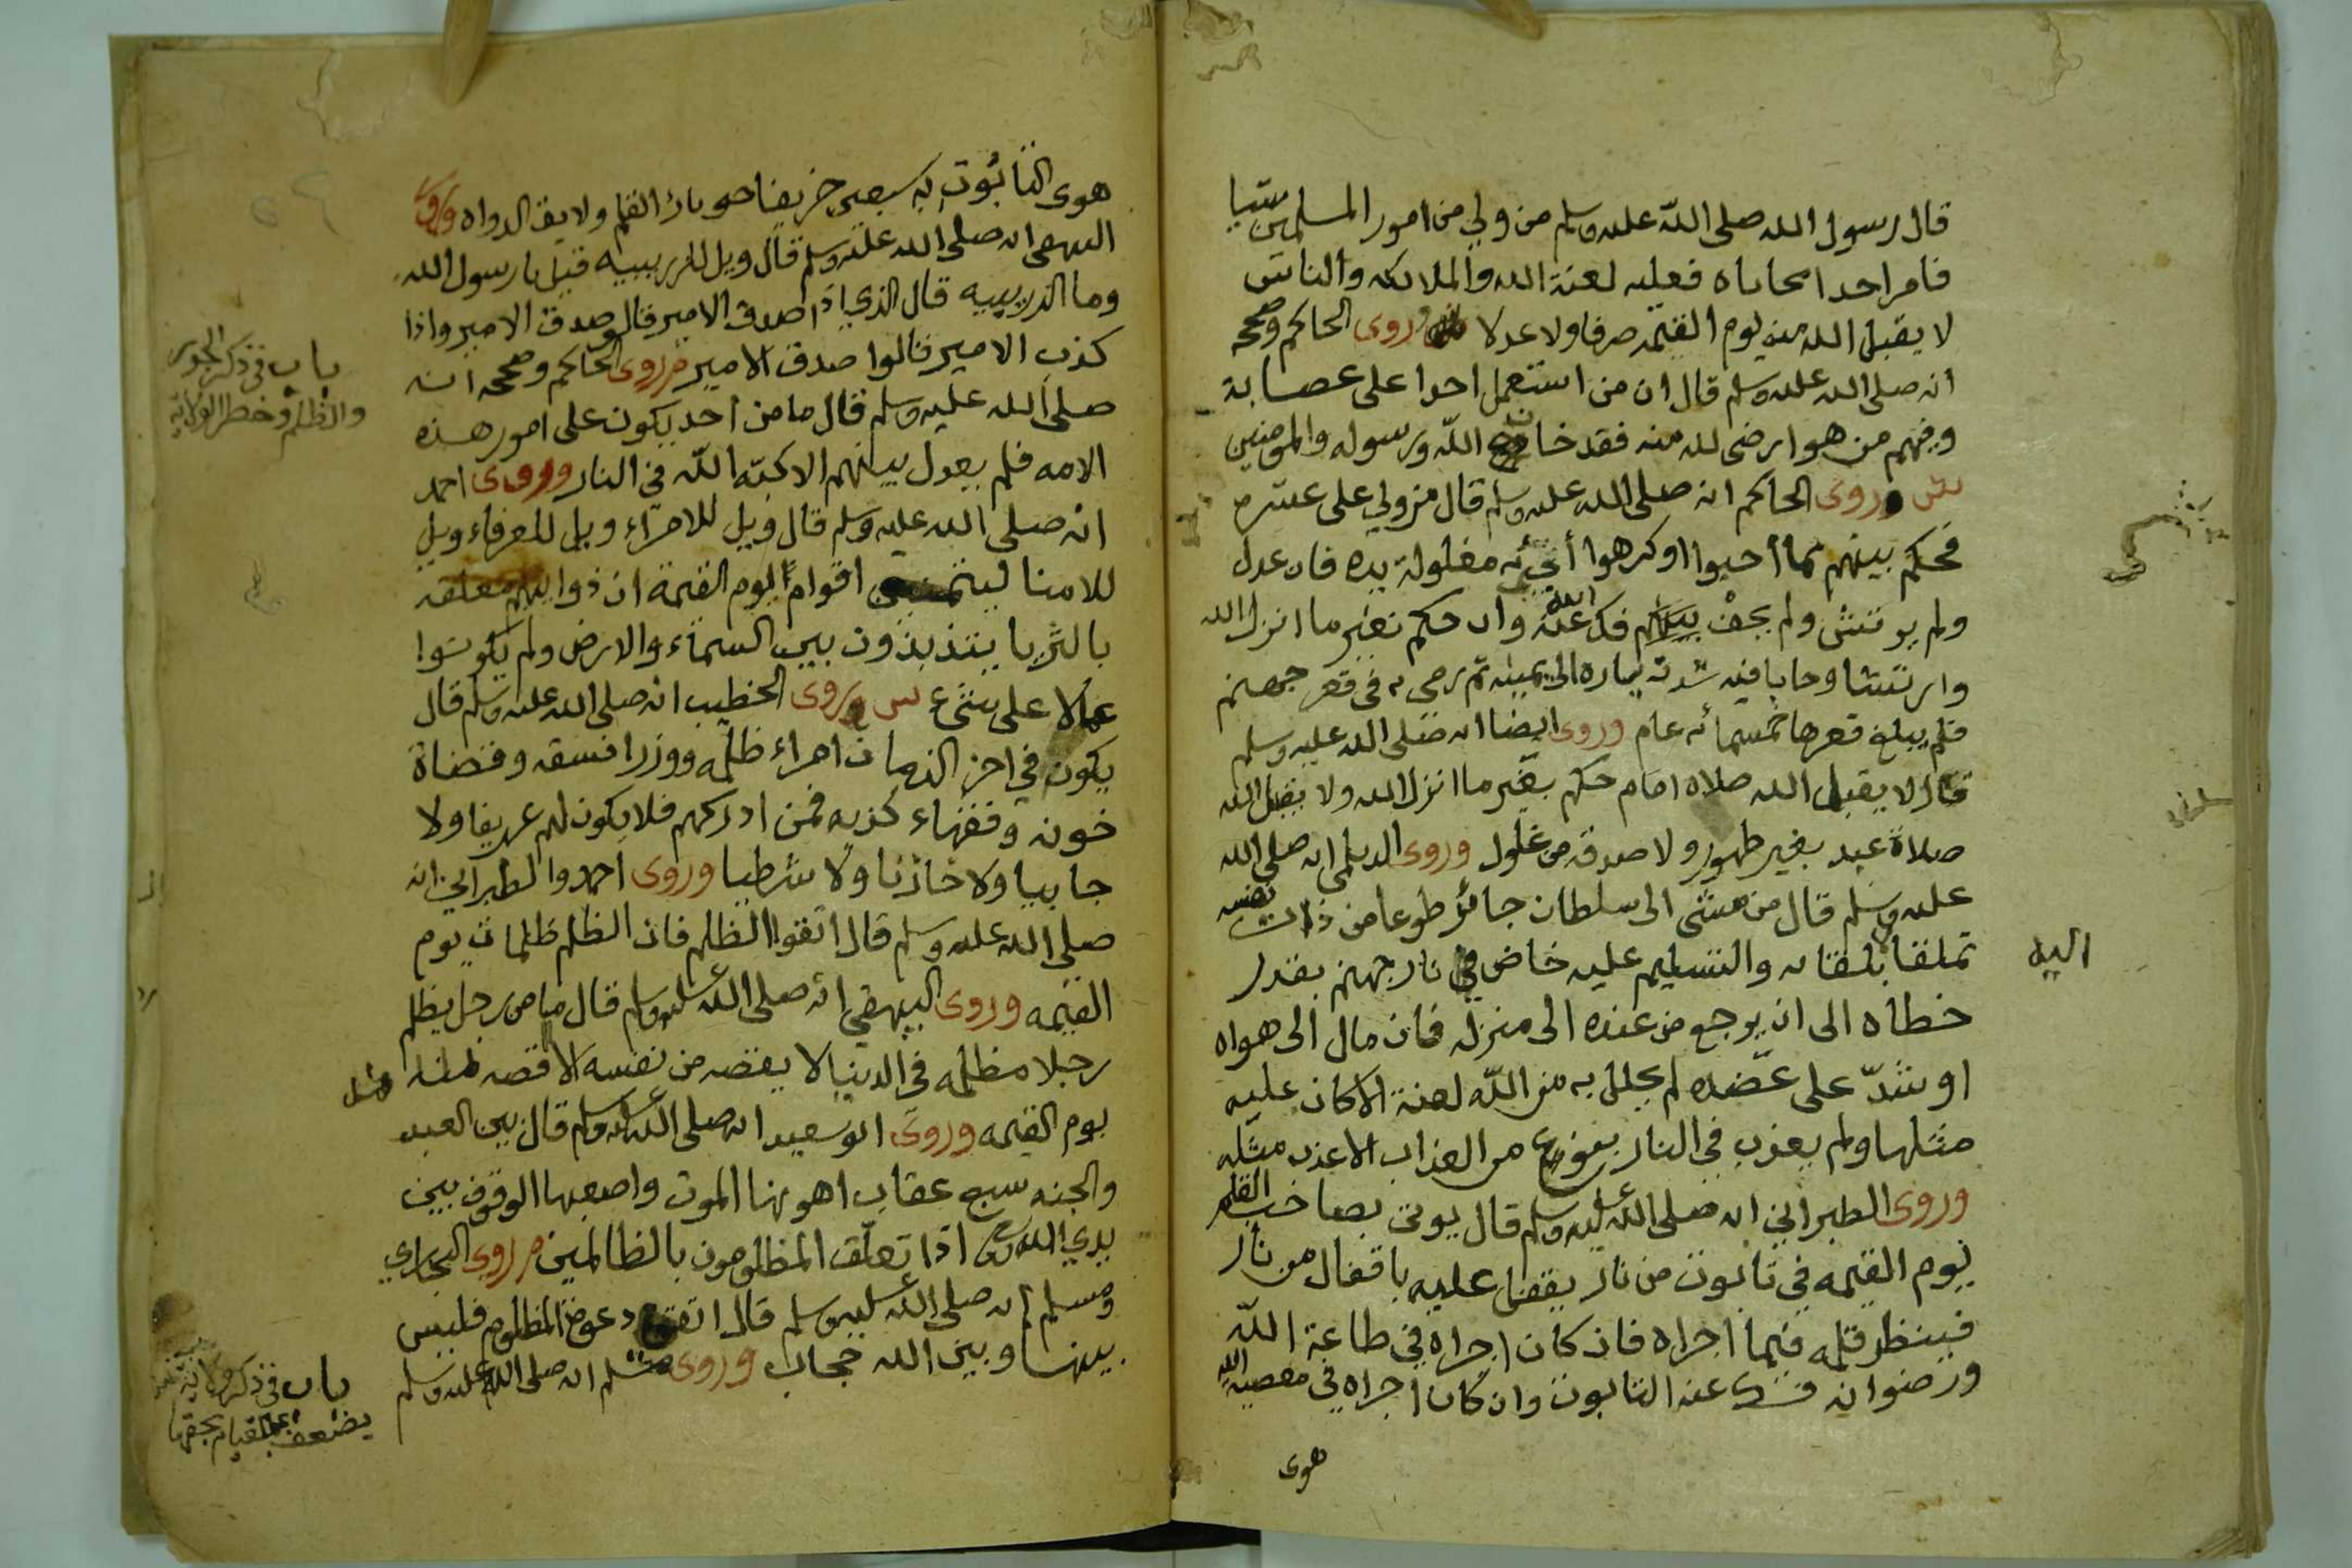 قال رسول الله صلى الله عليه وسلم من ولي من امور المسلمين شيا
فامر احدا محاباه فعليه لعنة الله والملائكه والناس
لا يقبل الله منه يوم القيمه صرفا ولا عدلا وروى الحاكم وصححه
انه صلى الله عليه وسلم قال ان من استعمل احدا على عصابة
وفيهم من هو ارضى لله منه فقد خان الله ورسوله والمومنين
وروى الحاكم انه صلى الله عليه وسلم قال من ولي على عشره
فحكم بينهم بما احبوا او كرهوا أتي به مغلولة يده فان عدل
ولم يرتش ولم يحف فك الله عنه وان حكم بغير ما انزل الله
وارتشا وحابا فيه شدت يساره الى يمينه ثم رمى به في قعر جهنم
فلم يبلغ قعرها خمسمائه عام وروى ايضا انه صلى الله عليه وسلم
قال لا يقبل الله صلاه امام حكم بغير ما انزل الله ولا يقبل الله
صلاة عبد بغير طهور ولا صدقه من غلول وروى الديلمي انه صلى الله
عليه وسلم قال من مشى الى سلطان جائر طوعا من ذات نفسه
تملقا بلقائه والتسليم عليه خاض في نار جهنم بقدر
اليه
خطاه الى ان يرجع من عنده الى منزله فان مال الى هواه
او شدّ على عضده لم يحلل به من اللّه لعنة الا كان عليه
مثلها ولم يعذب في النار بنوع من العذاب الا عذب مثله
وروى الطبراني انه صلى الله عليه وسلم قال يوتى بصاحب القلم
يوم القيمه في تابوت من نار يقفل عليه باقفال من نار
فينظر قلمه فيما اجراه فان كان اجراه في طاعة اللّه
ورضوانه فك عنه التابوت وان كان اجراه في معصية الله
هوى
هوى التابوت به سبعين خريفا حتى بارئ القلم ولايق الدواه وروى
البيهقى انه صلى الله عليه وسلم قال ويل للزريبيه قيل يا رسول الله
وما الزريبيه قال الذي اذا صدق الامير قالو صدق الامير واذا
كذب الامير قالوا صدق الامير وروى الحاكم وصححه انه
باب في ذكر الجور
والظلم وخطر الولاية
صلى الله عليه وسلم قال ما من أحد يكون على امور هذه
الامه فلم يعدل بينهم الا كبّه اللّه في النار وروى احمد
انه صلى الله عليه وسلم قال ويل للامرآء ويل للعرفاء ويل
للامنا ليتمنين اقوام يوم القيمة ان ذوايبهم معلقه
بالثريا يتذبذون بين السمآء والارض ولم يكونوا
عملا على شيء وروى الخطيب انه صلى الله عليه وسلم قال
يكون في اخر الزمان امراء ظلمه ووزرا فسقه وقضاة
خونه وفقهاء كذبه فمن ادركهم فلا يكون لهم عريفا ولا
جابيا ولا خازنا ولا شرطيا وروى احمد والطبراني انه
صلى الله عليه وسلم قال اتقوا الظلم فان الظلم ظلمات يوم
القيمه وروى البيهقي انه صلى الله عليه وسلم قال ما من رجل يظلم
رجلا مظلمه في الدنيا لا يقصه من نفسه الا قصه الله منه
يوم القيمه وروى ابو سعيد انه صلى الله عليه وسلم قال بين العبد
والجنه سبع عقاب اهونها الموت واصعبها الوقوف بين
يدي الله اذا تعلّق المظلومون بالظالمين وروى البخاري
ومسلم انه صلى الله عليه وسلم قال اتق دعوة المظلوم فليس
بينها وبين الله حجاب وروى مسلم انه صلى الله عليه وسلم
باب في ذكر
يضعف عن القيام بحقها